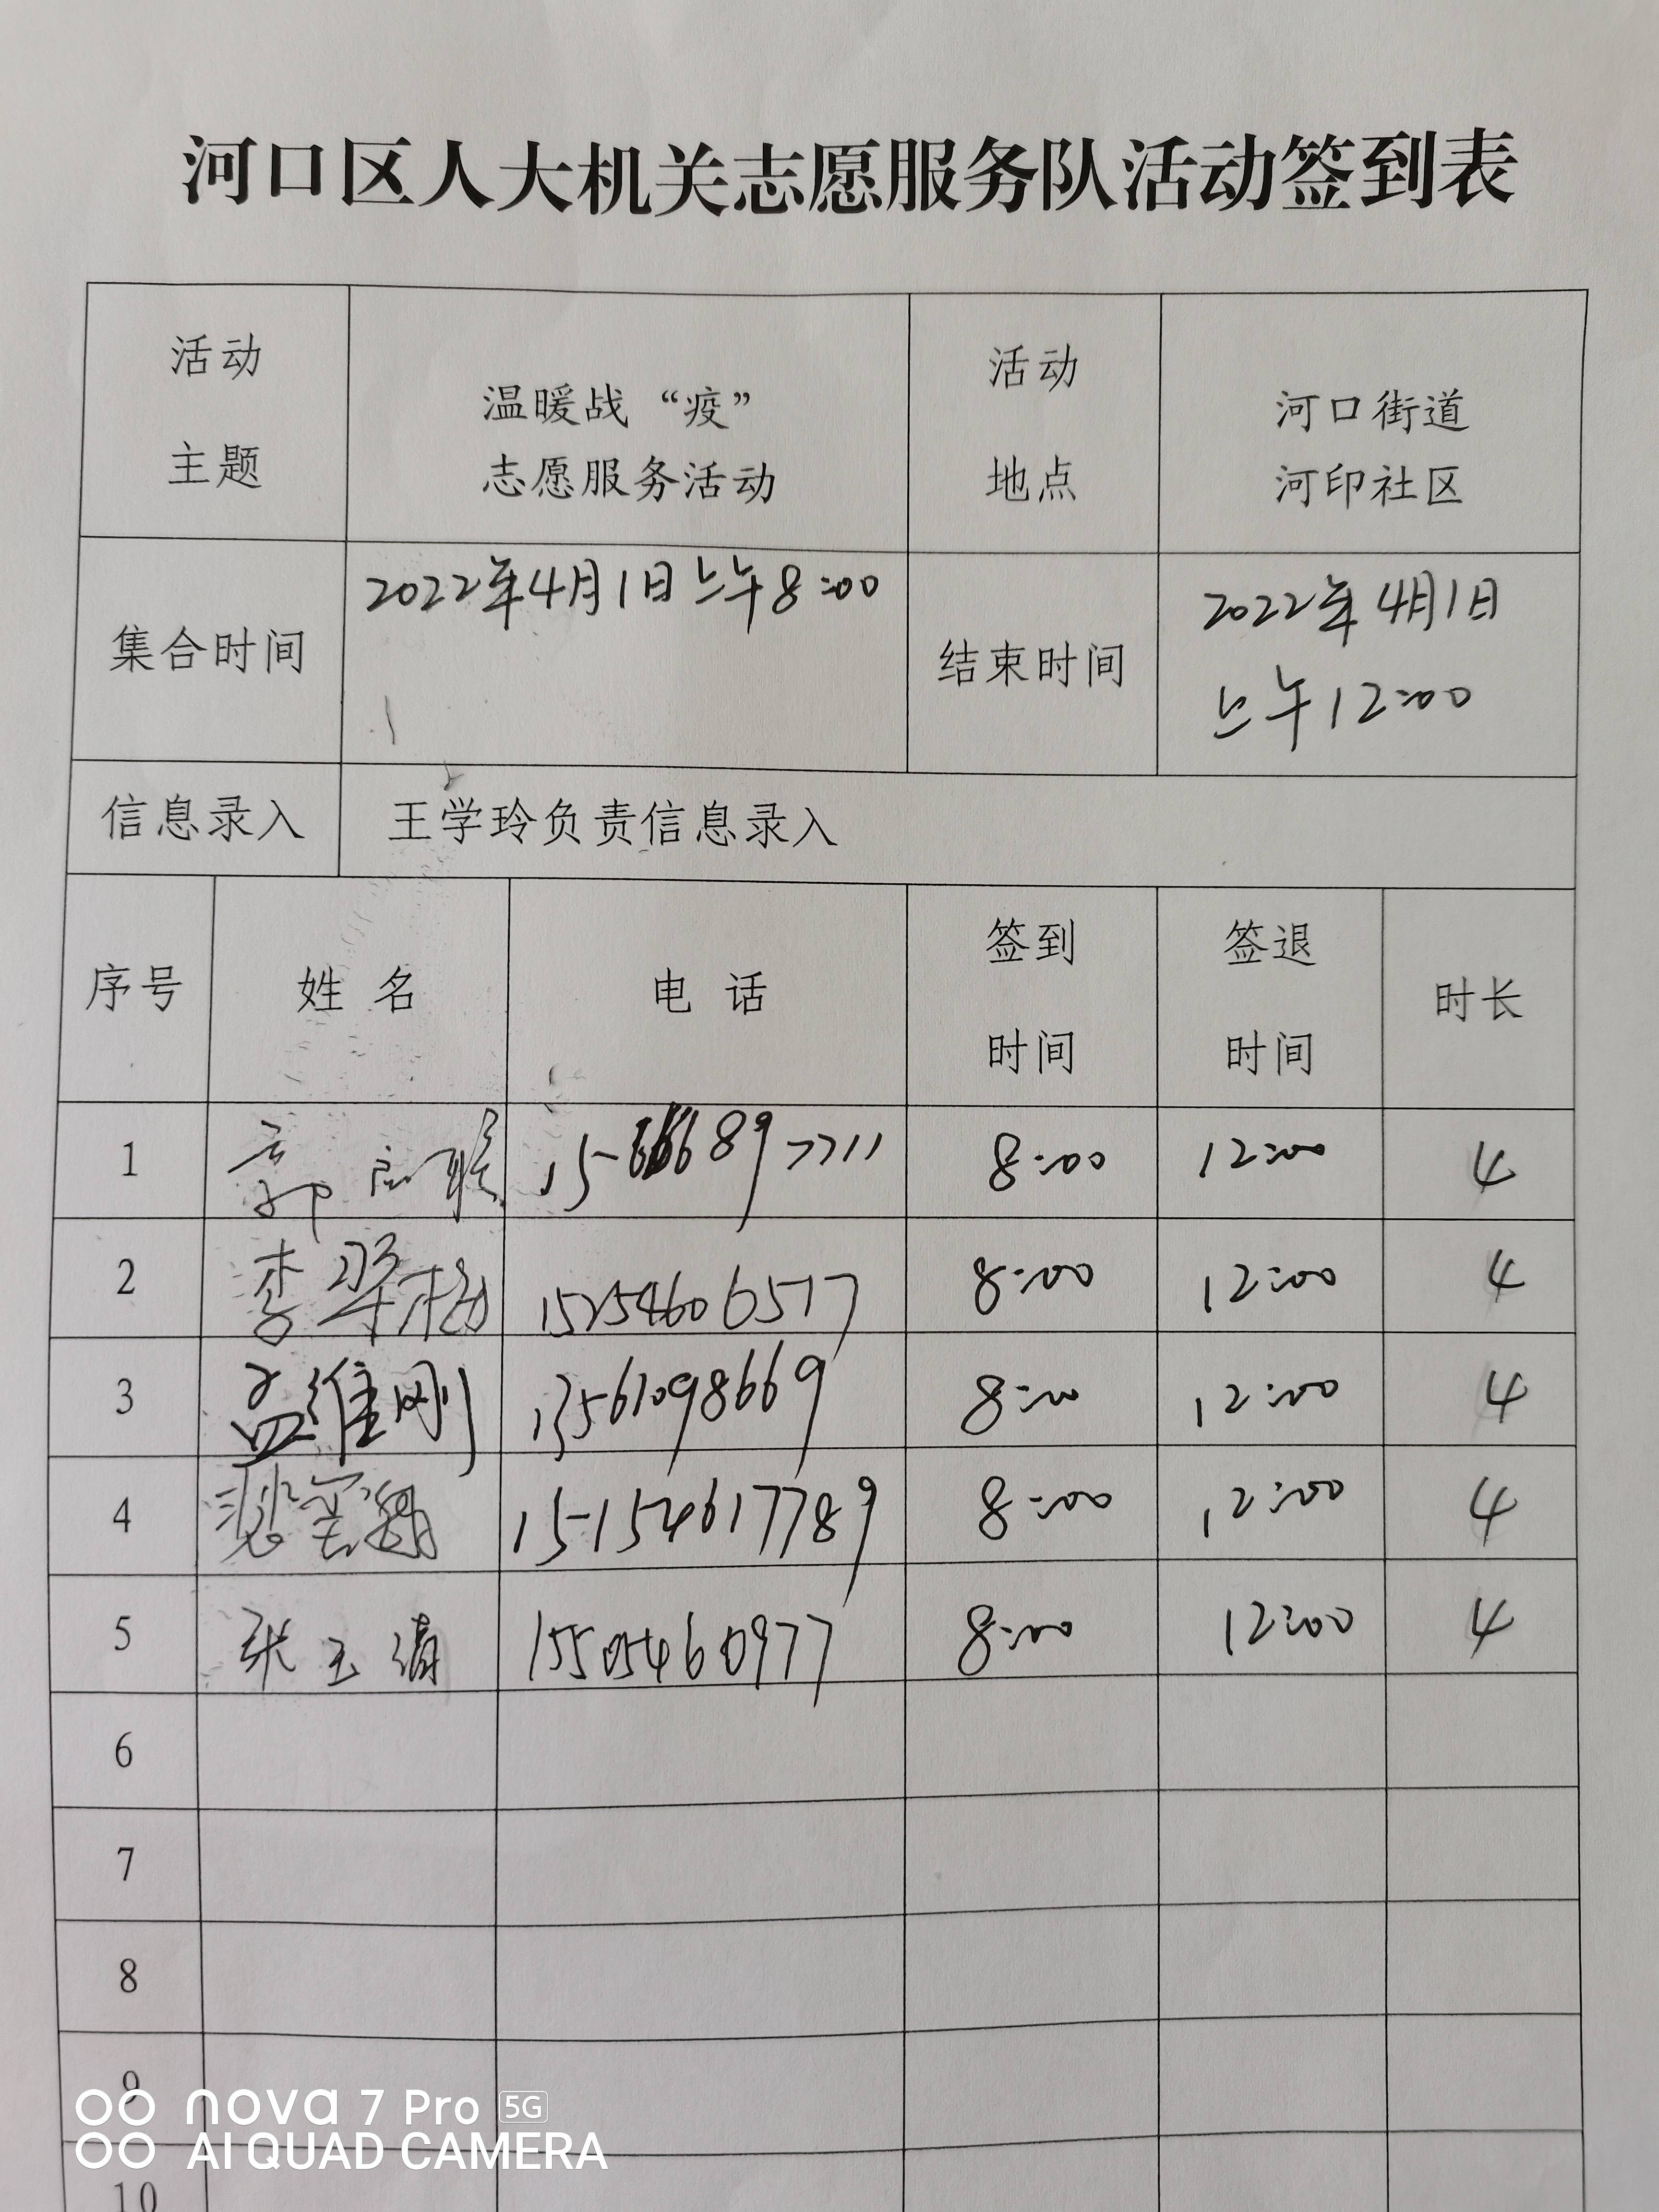 河口区人大机关志愿服务队活动签到表
活动 主题
温暖战“疫”
志愿服务活动
活动 地点
河口街道
河印社区
集合时间
2022年4月1日上午8:00
结束时间
2022年4月1日
上午12:00
信息录入 王学玲负责信息录入
序号 姓名 电话 签到时间 签退时间 时长
1 8:00 12:00 4
2 15254606577 8:00 12:00 4
3 孟维刚 13561098669 8:00 12:00 4
4 8:00 12:00 4
5 张玉清 15505460977 8:00 12:00 4
6
7
8
9
10
nova 7 Pro 5G
AI QUAD CAMERA